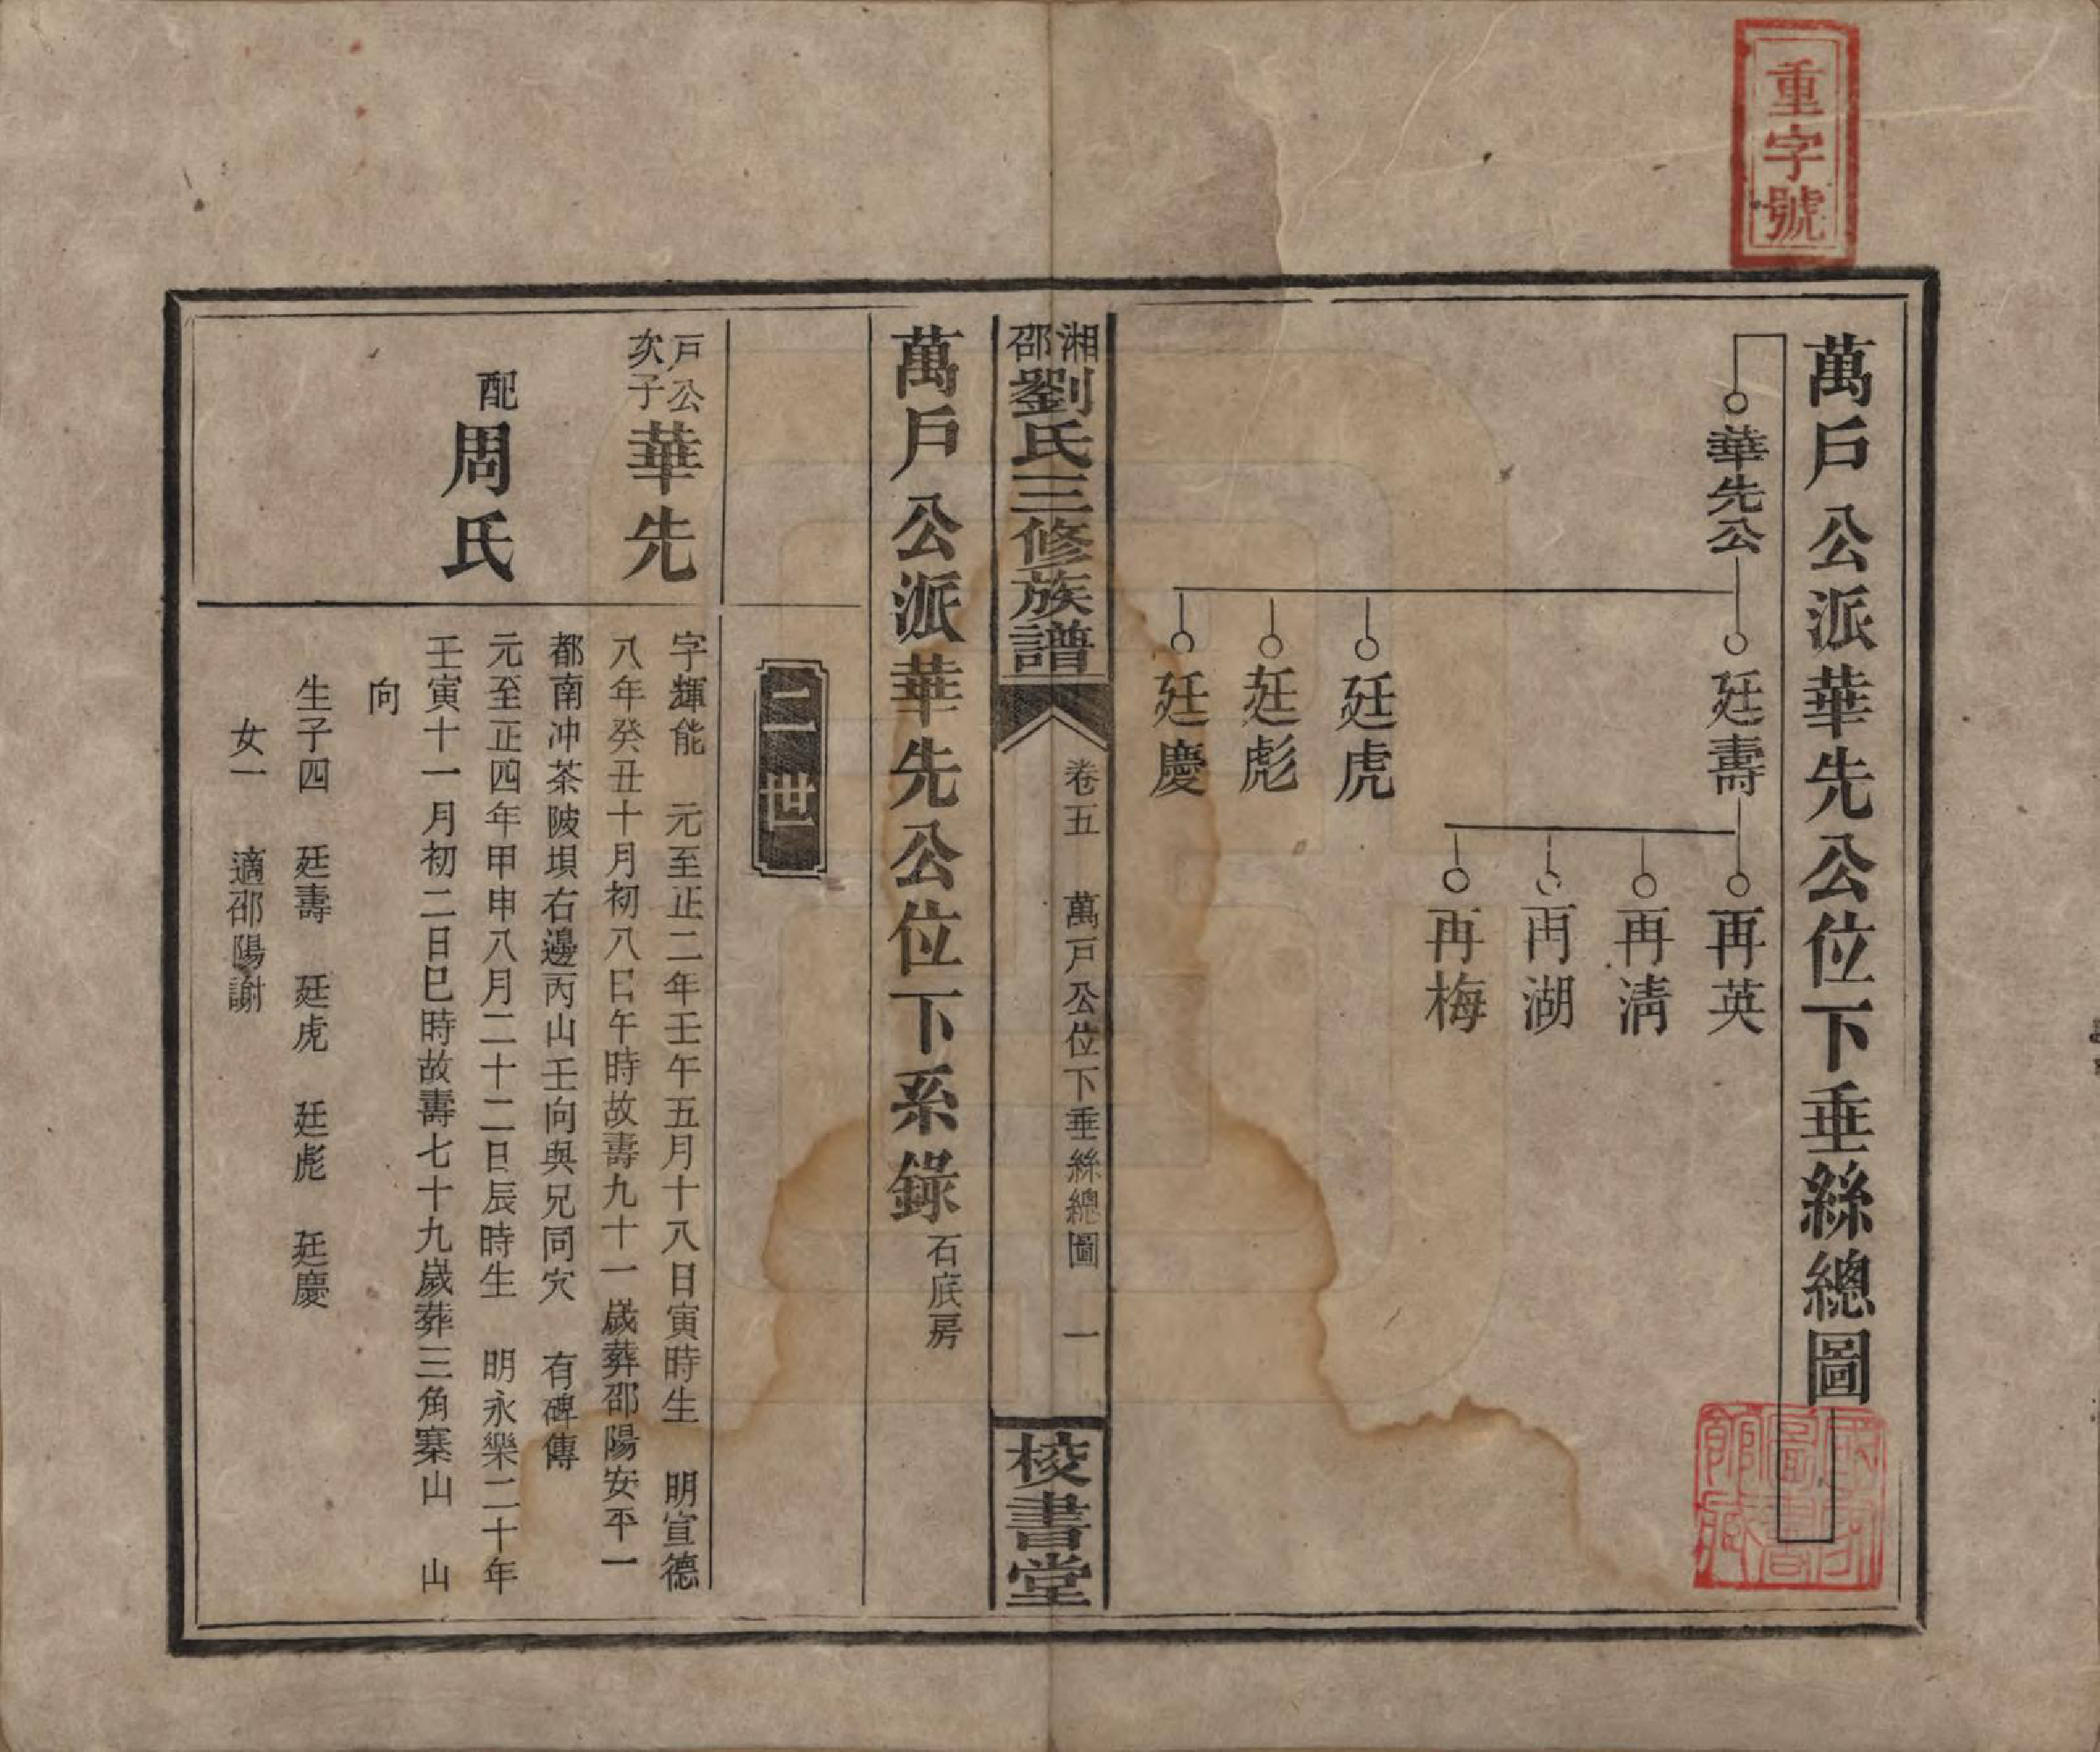 重字號
萬戶公派華先公位下垂絲總圖
華先公
廷壽
廷虎
廷彪
廷慶
再英
再清
再湖
再梅
湘邵劉氏三修族譜
卷五 萬戶公位下垂絲總圖 一
校書堂
萬戶公派華先公位下系錄 石底房
二世
戶公次子 華先
字輝能 元至正二年壬午五月十八日寅時生 明宣德
八年癸丑十月初八日午時故壽九十一歲葬邵陽安平一
都南冲茶陂垻右邊丙山壬向與兄同穴 有碑傳
配周氏
元至正四年甲申八月二十二日辰時生 明永樂二十年
壬寅十一月初二日巳時故壽七十九歲葬三角寨山 山
向
生子四 廷壽 廷虎 廷彪 廷慶
女一 適邵陽謝